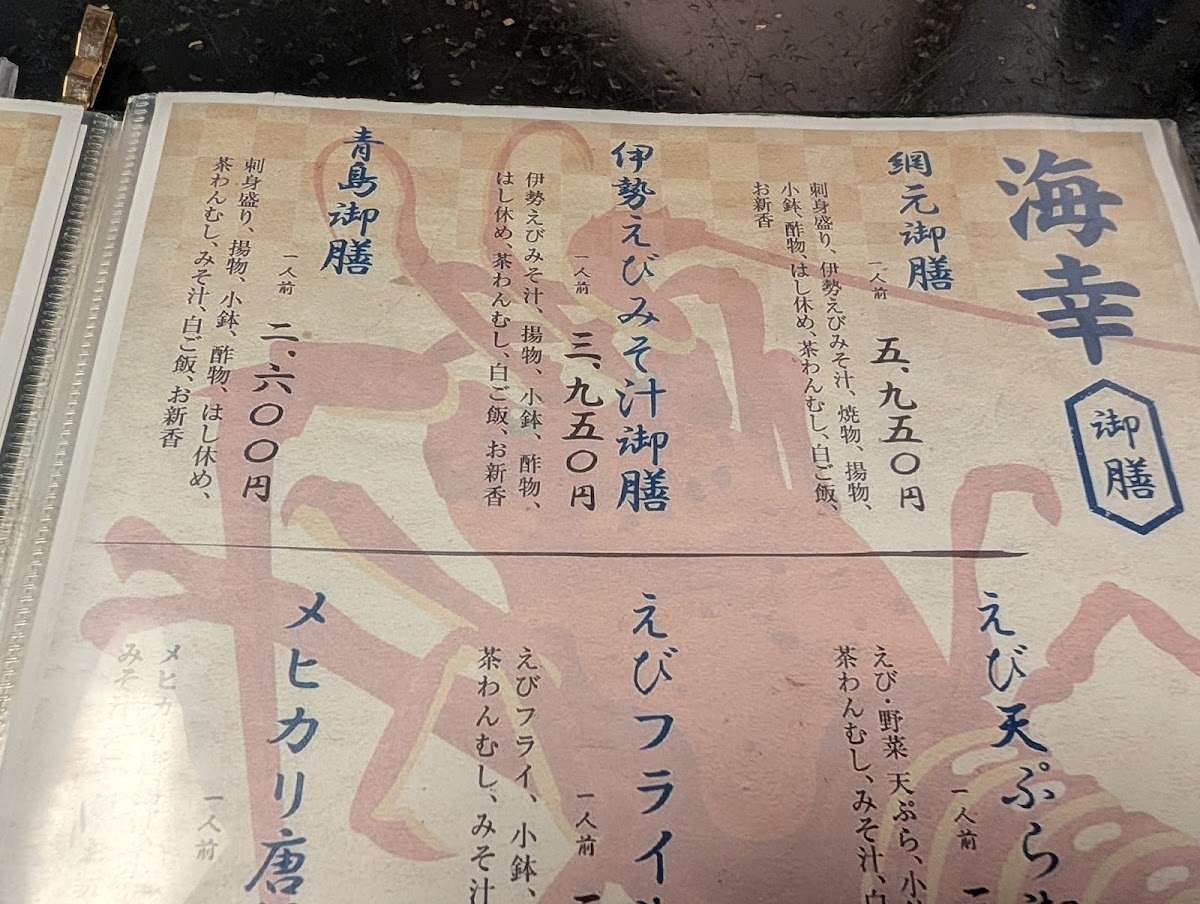 海幸
御膳
網元御膳
一人前
五、九五〇円
刺身盛り、伊勢えびみそ汁、焼物、揚物、
小鉢、酢物、はし休め、茶わんむし、白ご飯、
お新香
伊勢えびみそ汁御膳
一人前
三、九五〇円
伊勢えびみそ汁、揚物、小鉢、酢物、
はし休め、茶わんむし、白ご飯、お新香
青島御膳
一人前
二、六〇〇円
刺身盛り、揚物、小鉢、酢物、はし休め、
茶わんむし、みそ汁、白ご飯、お新香
えび天ぷら
一人前
えび・野菜 天ぷら、小
茶わんむし、みそ汁、白
えびフライ
一人前
えびフライ、小鉢、
茶わんむし、みそ汁
メヒカリ唐
一人前
メヒカ
みそ